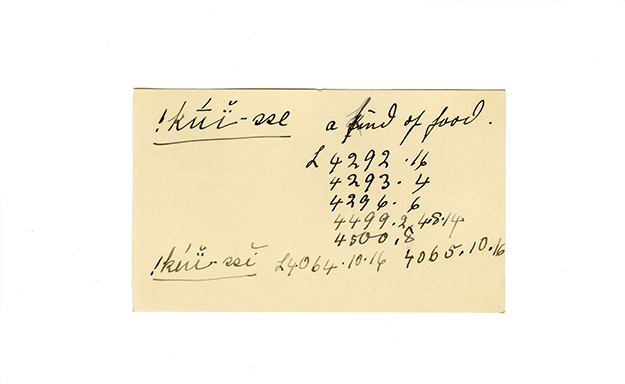 !kúï̆-sse a kind of food.
L 4292.16
4293.4
4296.6
4499.2,4,8.14
4500.8
!kúï̆-ssĭ L4064.10.16 4065.10.16